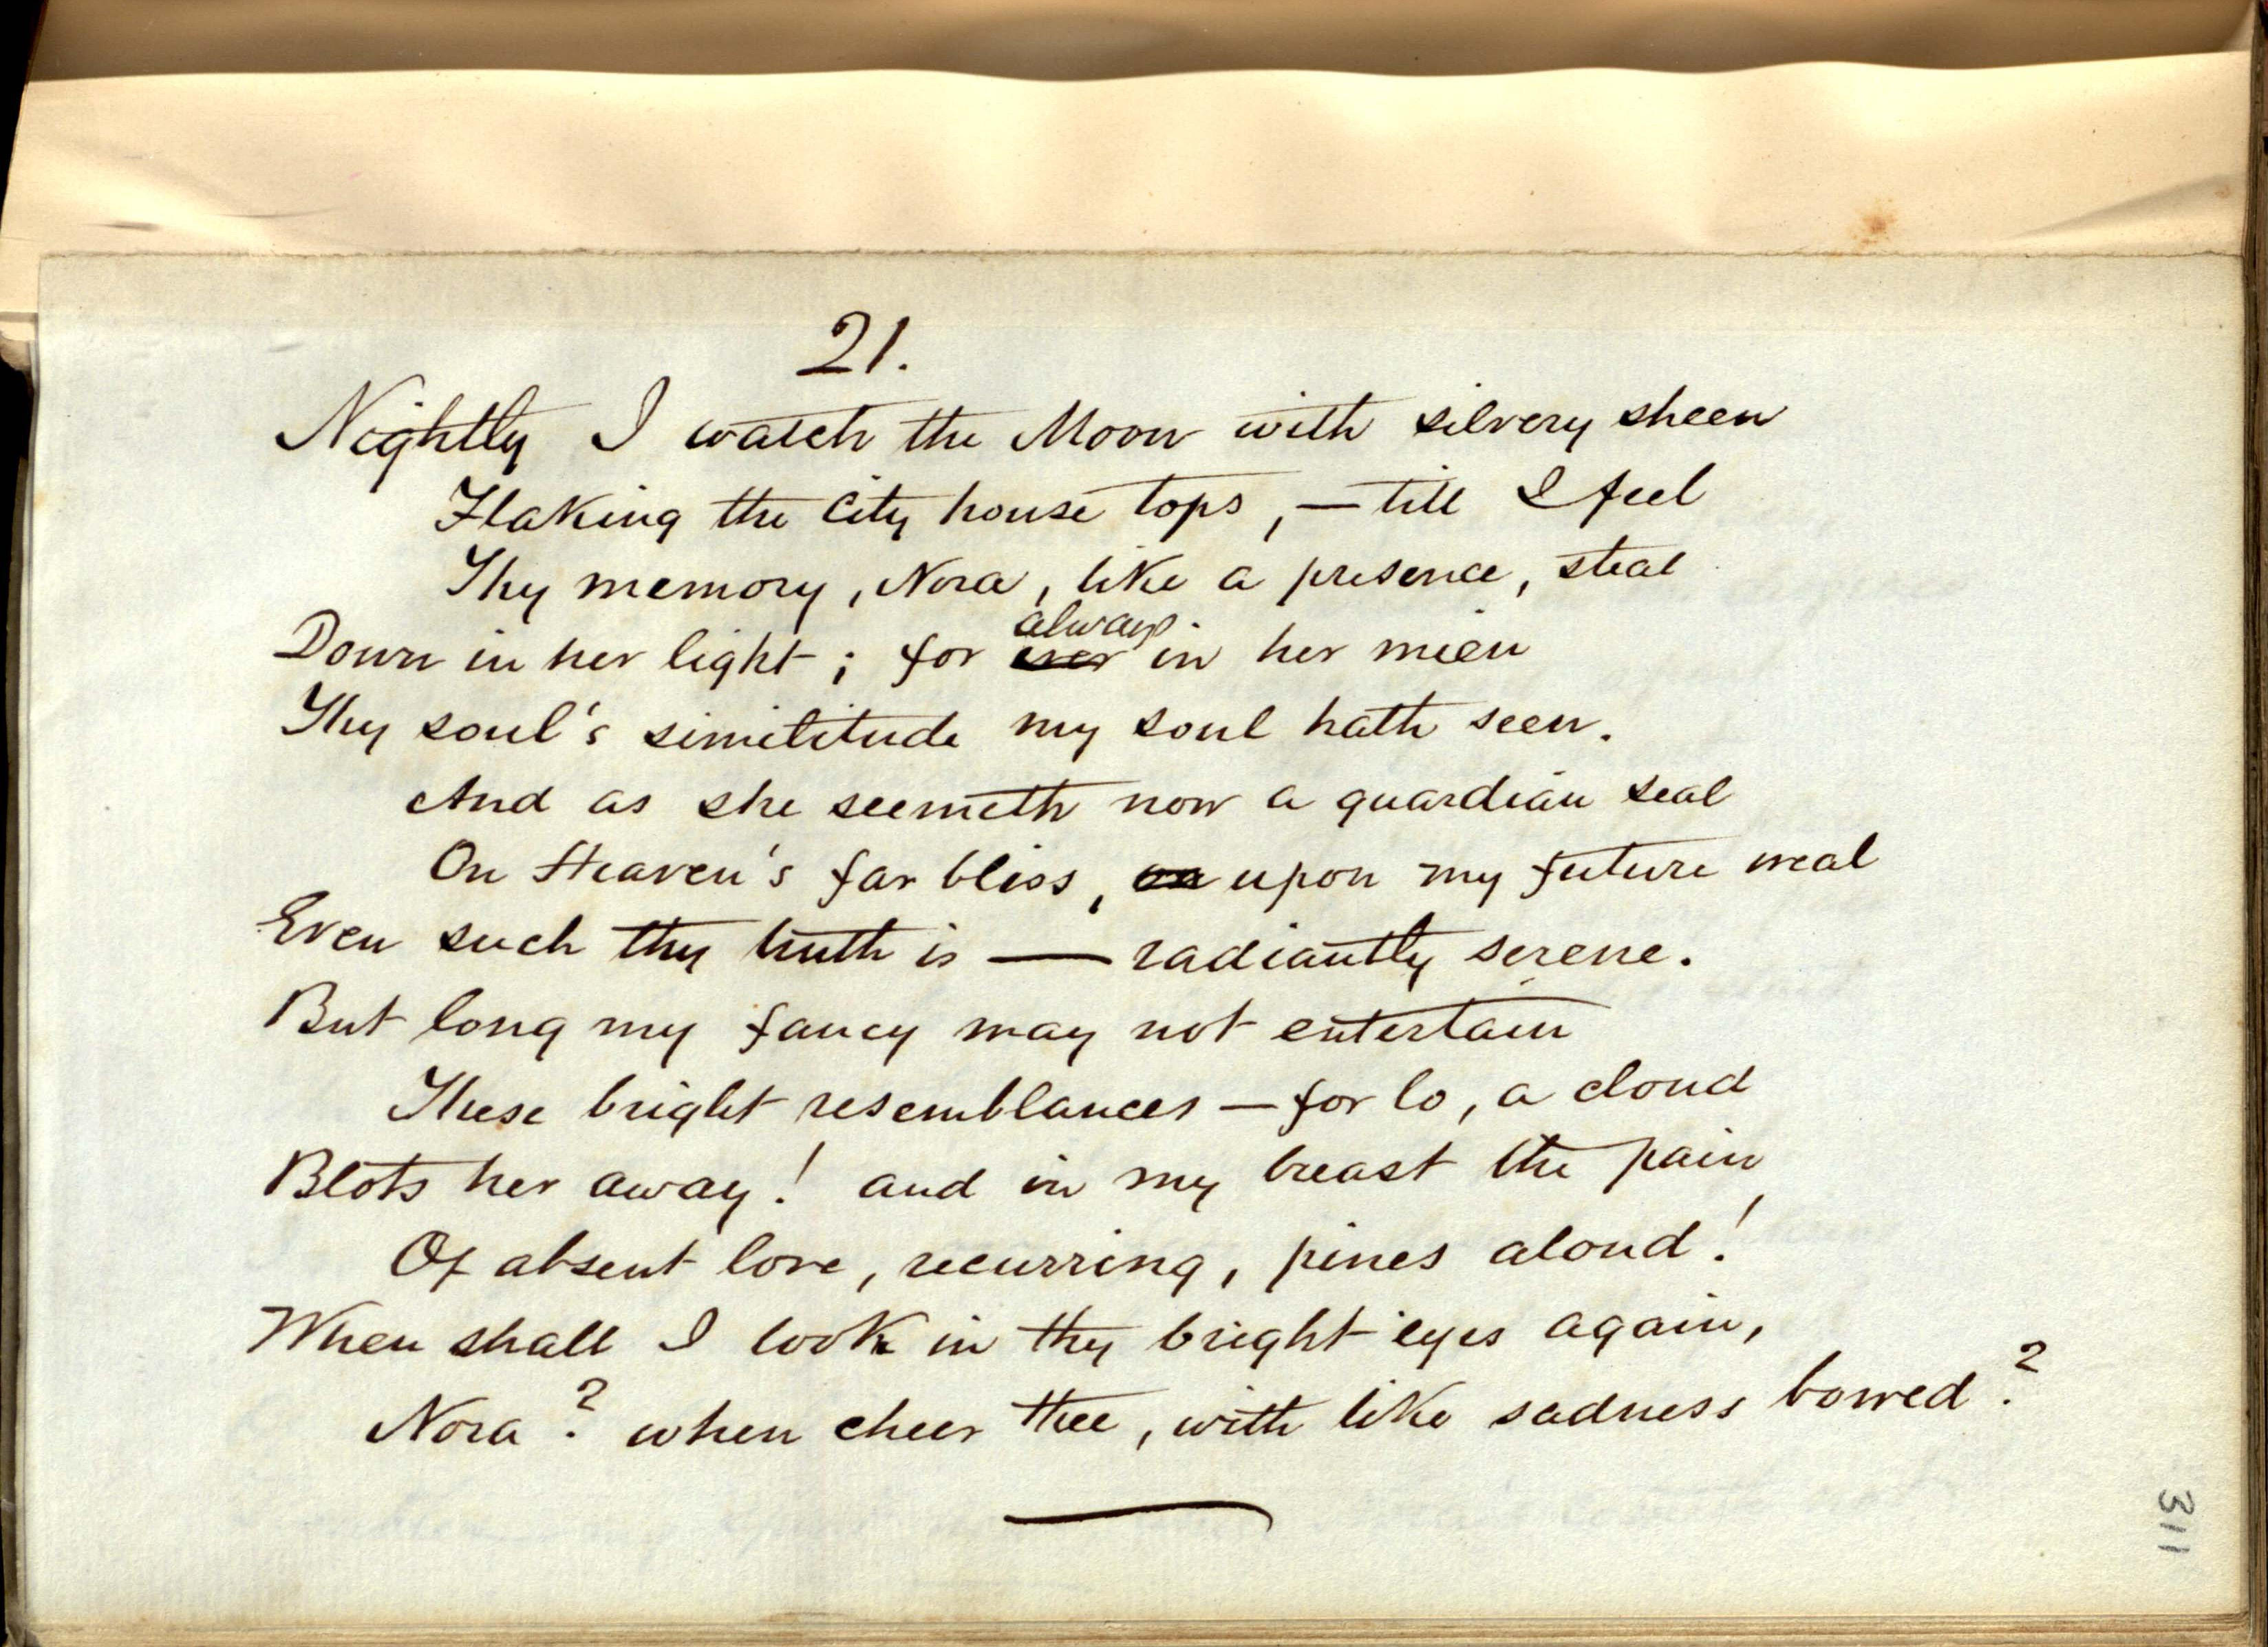 21.
Nightly I watch the Moon with silvery sheen
Flaking the City house tops, — till I feel
Thy memory, Nora, like a presence, steal
always
Down in her light; for ever in her mien
Thy soul's similitude my soul hath seen.
And as she seemeth now a guardian seal
On Heaven's far bliss, on upon my future weal
Even such thy truth is — radiantly serene.
But long my fancy may not entertain
These bright resemblances — for lo, a cloud
Blots her away! and in my breast the pain
Of absent love, recurring, pines aloud!
When shall I look in thy bright eyes again,
Nora? when cheer thee, with like sadness bowed?
311